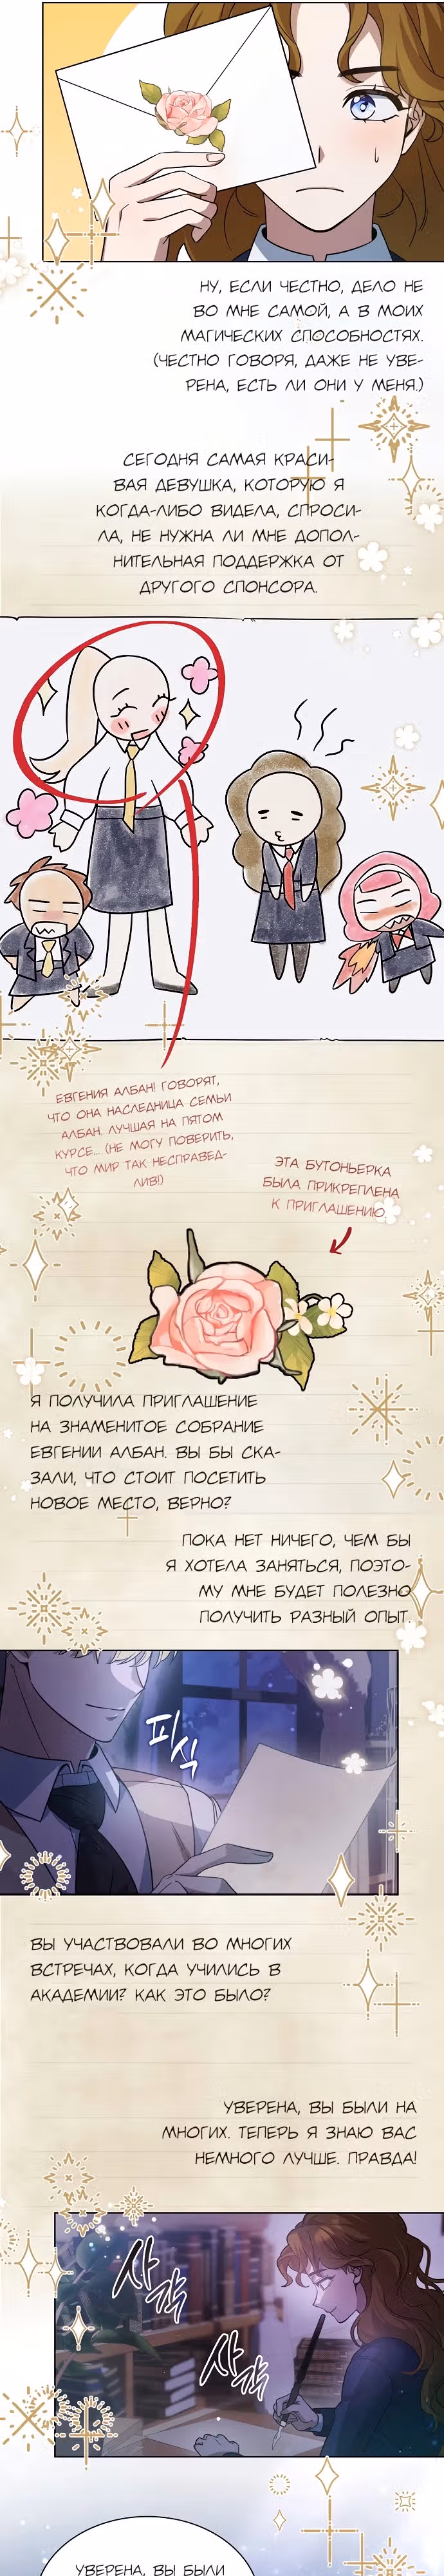 НУ, ЕСЛИ ЧЕСТНО, ДЕЛО НЕ
ВО МНЕ САМОЙ, А В МОИХ
МАГИЧЕСКИХ СПОСОБНОСТЯХ.
(ЧЕСТНО ГОВОРЯ, ДАЖЕ НЕ УВЕ-
РЕНА, ЕСТЬ ЛИ ОНИ У МЕНЯ.)
СЕГОДНЯ САМАЯ КРАСИ-
ВАЯ ДЕВУШКА, КОТОРУЮ Я
КОГДА-ЛИБО ВИДЕЛА, СПРОСИ-
ЛА, НЕ НУЖНА ЛИ МНЕ ДОПОЛ-
НИТЕЛЬНАЯ ПОДДЕРЖКА ОТ
ДРУГОГО СПОНСОРА.
ЕВГЕНИЯ АЛБАН! ГОВОРЯТ,
ЧТО ОНА НАСЛЕДНИЦА СЕМЬИ
АЛБАН. ЛУЧШАЯ НА ПЯТОМ
КУРСЕ... (НЕ МОГУ ПОВЕРИТЬ,
ЧТО МИР ТАК НЕСПРАВЕД-
ЛИВ!)
ЭТА БУТОНЬЕРКА
БЫЛА ПРИКРЕПЛЕНА
К ПРИГЛАШЕНИЮ
Я ПОЛУЧИЛА ПРИГЛАШЕНИЕ
НА ЗНАМЕНИТОЕ СОБРАНИЕ
ЕВГЕНИИ АЛБАН. ВЫ БЫ СКА-
ЗАЛИ, ЧТО СТОИТ ПОСЕТИТЬ
НОВОЕ МЕСТО, ВЕРНО?
ПОКА НЕТ НИЧЕГО, ЧЕМ БЫ
Я ХОТЕЛА ЗАНЯТЬСЯ, ПОЭТО-
МУ МНЕ БУДЕТ ПОЛЕЗНО
ПОЛУЧИТЬ РАЗНЫЙ ОПЫТ.
피식
ВЫ УЧАСТВОВАЛИ ВО МНОГИХ
ВСТРЕЧАХ, КОГДА УЧИЛИСЬ В
АКАДЕМИИ? КАК ЭТО БЫЛО?
УВЕРЕНА, ВЫ БЫЛИ НА
МНОГИХ. ТЕПЕРЬ Я ЗНАЮ ВАС
НЕМНОГО ЛУЧШЕ. ПРАВДА!
사각
사각
УВЕРЕНА, ВЫ БЫЛИ